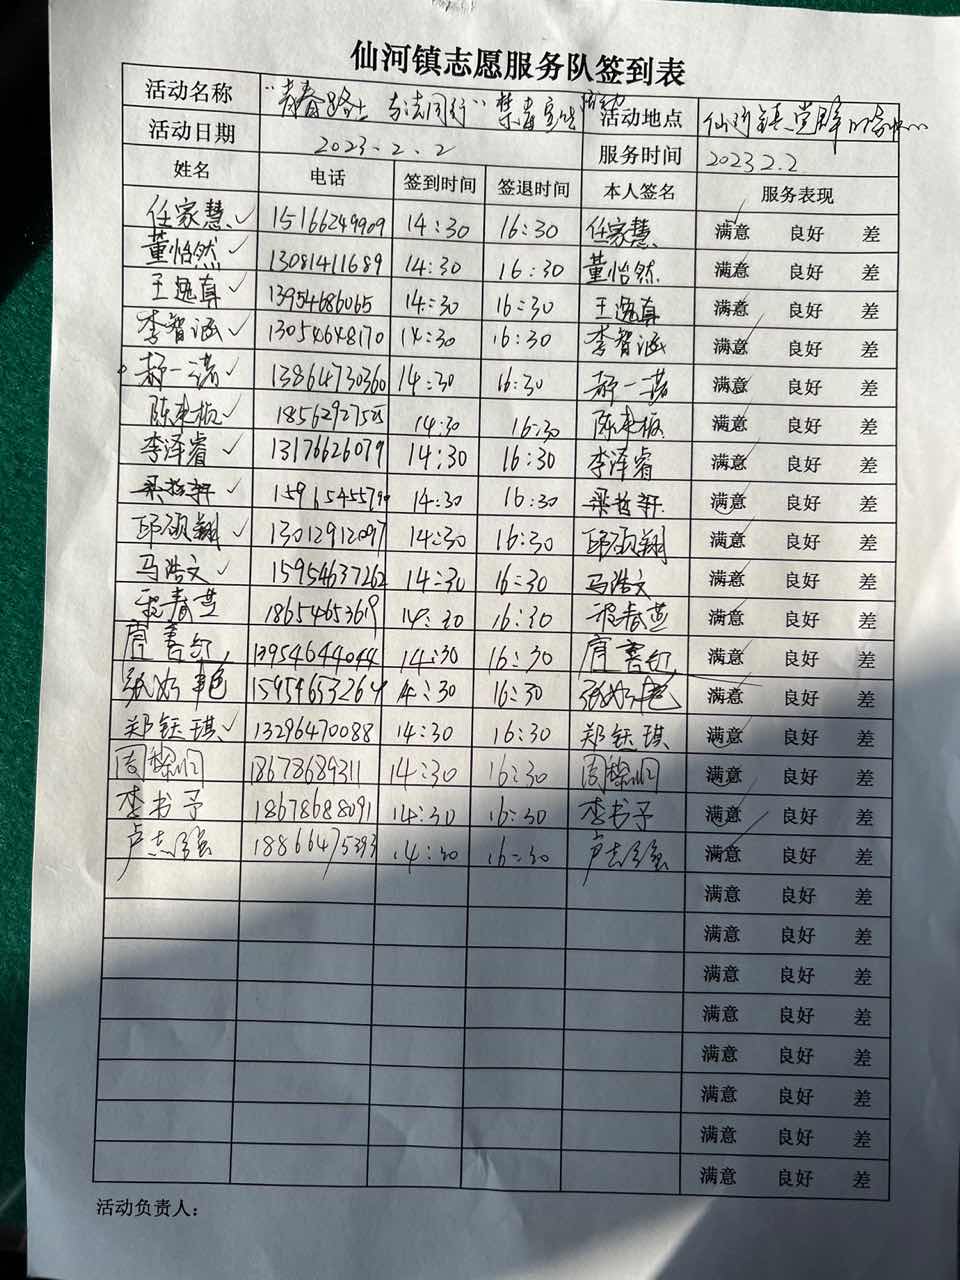 仙河镇志愿服务队签到表
活动名称 "青春路上 与法同行" 禁毒宣传活动 活动地点 仙河镇党群服务中心
活动日期 2023.2.2 服务时间 2023.2.2
姓名 电话 签到时间 签退时间 本人签名 服务表现
任家慧 15166249909 14:30 16:30 任家慧 满意 良好 差
董怡然 13081411689 14:30 16:30 董怡然 满意 良好 差
王逸真 13954686065 14:30 16:30 王逸真 满意 良好 差
李智涵 13054648170 14:30 16:30 李智涵 满意 良好 差
一诺 13864730360 14:30 16:30 一诺 满意 良好 差
陈 14:30 16:30 陈 满意 良好 差
李泽睿 13176626079 14:30 16:30 李泽睿 满意 良好 差
14:30 16:30 满意 良好 差
邱硕翔 13012912097 14:30 16:30 邱硕翔 满意 良好 差
马浩文 15954637262 14:30 16:30 马浩文 满意 良好 差
春燕 18654653619 14:30 16:30 春燕 满意 良好 差
13954644044 14:30 16:30 满意 良好 差
张 15954653264 14:30 16:30 张 满意 良好 差
郑钰琪 13296470088 14:30 16:30 郑钰琪 满意 良好 差
周 18678689311 14:30 16:30 周 满意 良好 差
李书予 18678688091 14:30 16:30 李书予 满意 良好 差
卢志强 18866475393 14:30 16:30 卢志强 满意 良好 差
满意 良好 差
满意 良好 差
满意 良好 差
满意 良好 差
满意 良好 差
满意 良好 差
满意 良好 差
满意 良好 差
活动负责人：